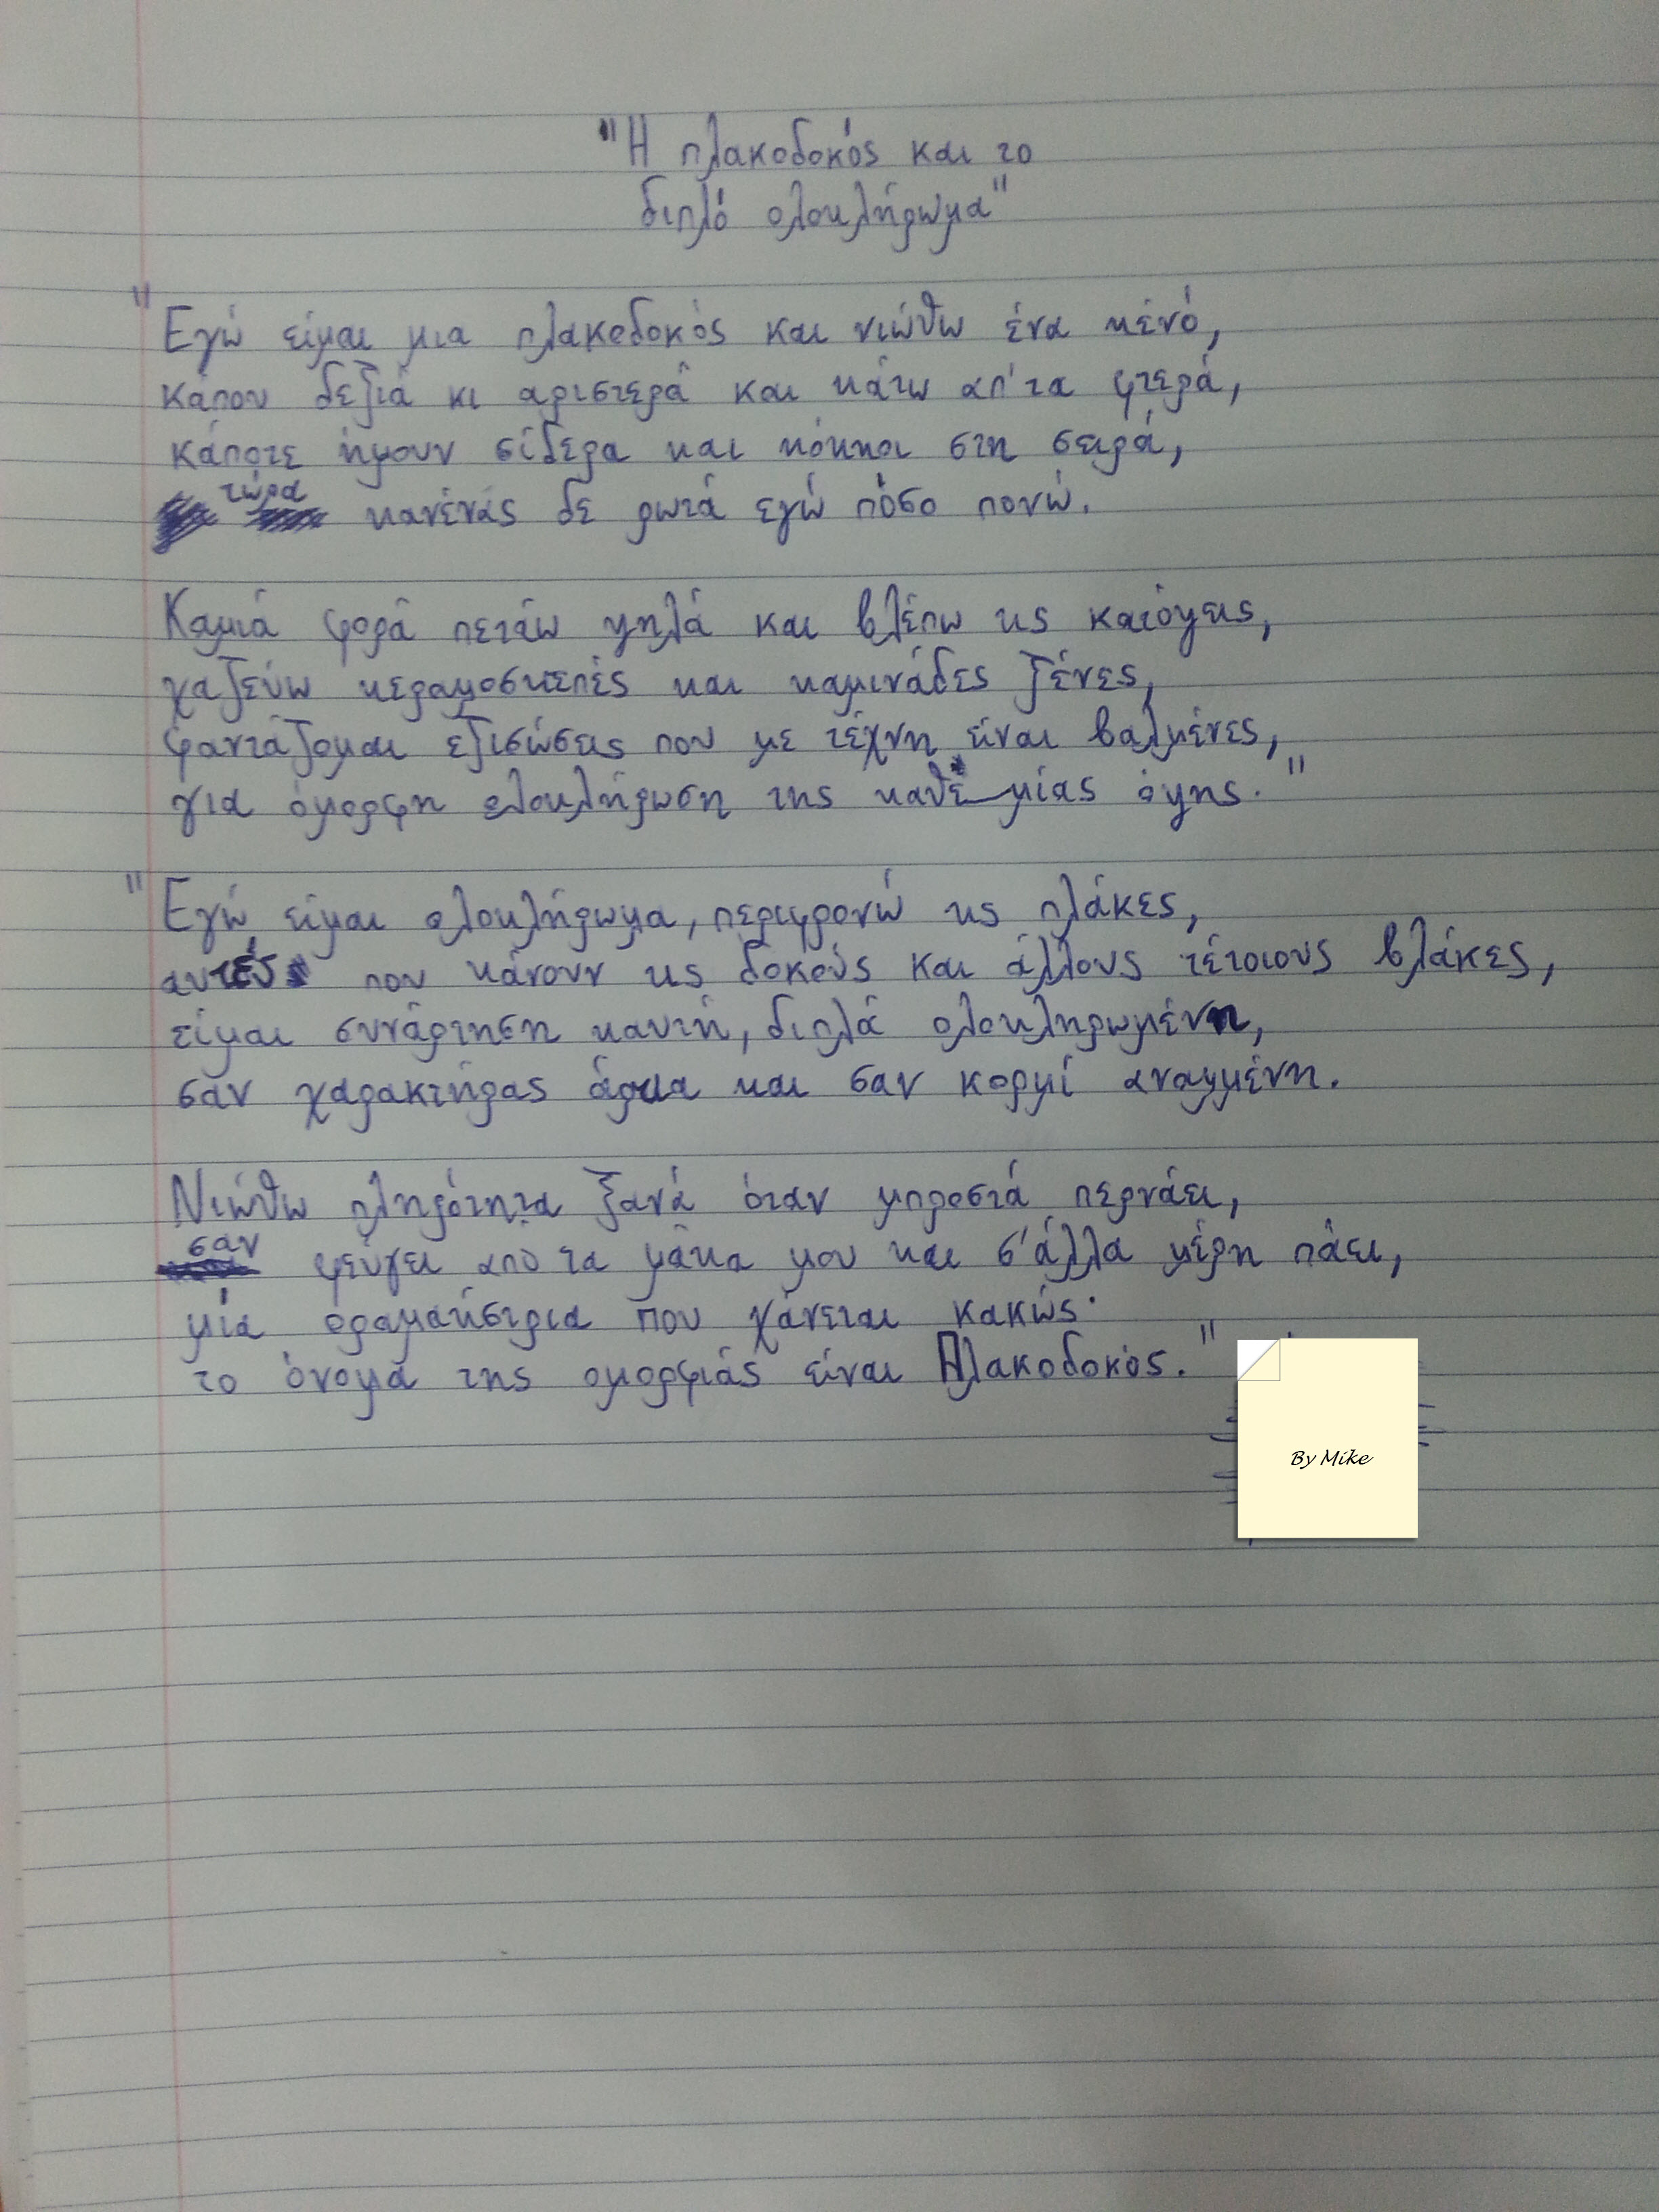 "Η πλακοδοκός και το
διπλό ολοκλήρωμα"
"Εγώ είμαι μια πλακοδοκός και νιώθω ένα κενό,
κάπου δεξιά κι αριστερά και κάτω απ'τα φτερά,
κάποτε ήμουν σίδερα και κόκκοι στη σειρά,
τώρα κανένας δε ρωτά εγώ πόσο πονώ.
Καμιά φορά πετάω ψηλά και βλέπω τις κατόψεις,
χαζεύω κεραμοσκεπές και καμινάδες ξένες,
φαντάζομαι εξισώσεις που με τέχνη είναι βαλμένες,
για όμορφη ολοκλήρωση της καθεμίας όψης."
"Εγώ είμαι ολοκλήρωμα, περιφρονώ τις πλάκες,
αυτές που κάνουν τις δοκούς και άλλους τέτοιους βλάκες,
είμαι συνάρτηση καυτή, διπλά ολοκληρωμένη,
σαν χαρακτήρας άρτια και σαν κορμί αναμμένη.
Νιώθω πληρότητα ξανά όταν μπροστά περνάει,
σαν φεύγει από τα μάτια μου και σ'άλλα μέρη πάει,
μία οραματίστρια που χάνεται κακώς·
το όνομα της ομορφιάς είναι Πλακοδοκός."
By Mike